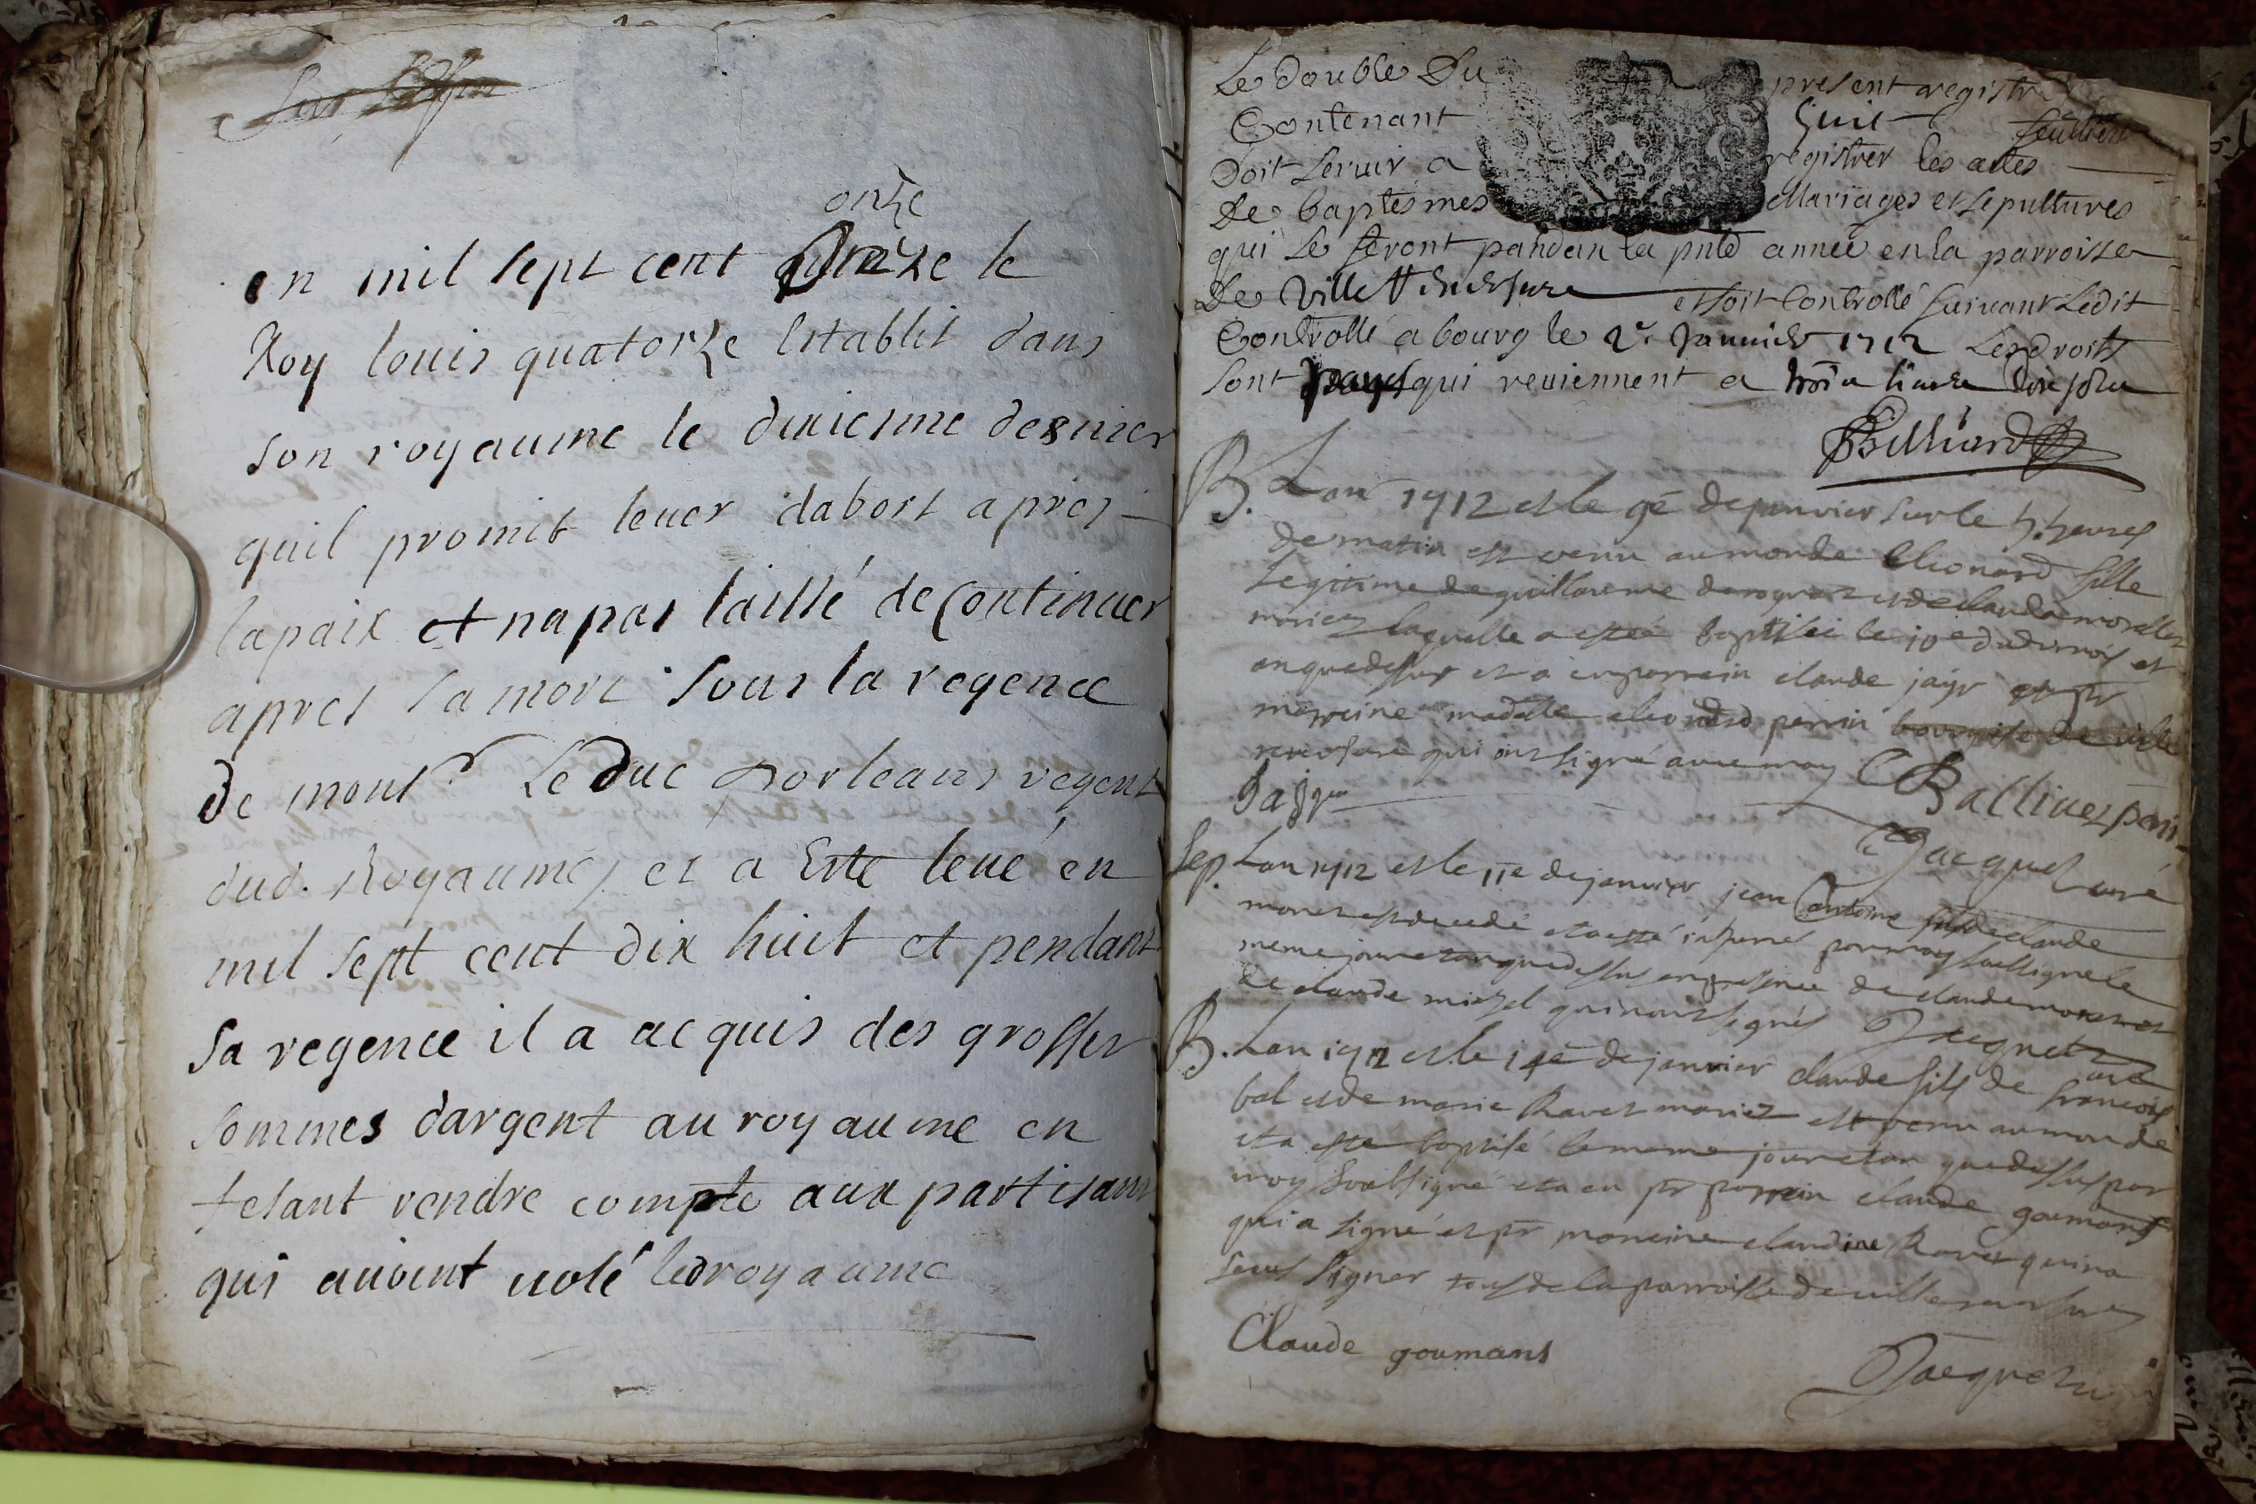 onze
en mil sept cent onze le
Roy louis quatorze establit dans
son royaume le dixiesme desnier
quil promit leuer dabort apres
lapaix et napas laissé de continuer
apres sa mort sous la regence
de monsr. Le duc dorleans regent
dud. Royaume, et a Este leué en
mil sept cent dix huit et pendant
sa regence il a acquis des grosses
sommes dargent au royaume en
fesant rendre compte aux partisans
qui auoient uolé led royaume
Le double Du present registre
Contenant huit feuillets
Doit seruir a registrer les actes
De baptesmes Mariages et sepultures
qui se feront pandan la pnte année en la parroisse
De Ville Reuersure et soit Controllé suiuant Ledit
Controllé a bourg le 2e Januier 1712 Les droits
sont payes qui reuiennent a trois liures dix solz
Billiard
B. Lan 1712 et le 9e de janvier sur le 5. heures
de matin est venu au monde Eleonard fille
Legitime de guillaume et de clauda
mariez laquelle a esté baptisée le 10e dudit mois et
an que dessus et a eu parrein claude jayr et pr
marreine madlle eleonard perrin bourgeoise de ville
reuersure qui ont signé auec moy C Balliuez perrin
Jayr
Jacquet curé
Sep. Lan 1712 et le 11e de janvier jean antoine fils de claude
monet est decedé et a esté inhumé par moy soussigné le
meme jour et an que dessus en presence de claude monet et
de claude michel qui nont signés Jacquet curé
B. Lan 1712 et le 14e de janvier claude fils de francois
bal et de marie Rauet mariez est venu au monde
et a este baptisé le meme jour et an que dessus par
moy soussigné et a eu pr parrein claude goumans
qui a signé et pr mareine claudine Rauet qui na
sceus signer tous de la parroisse de uille reuersure
Claude goumans
Jacquet cu